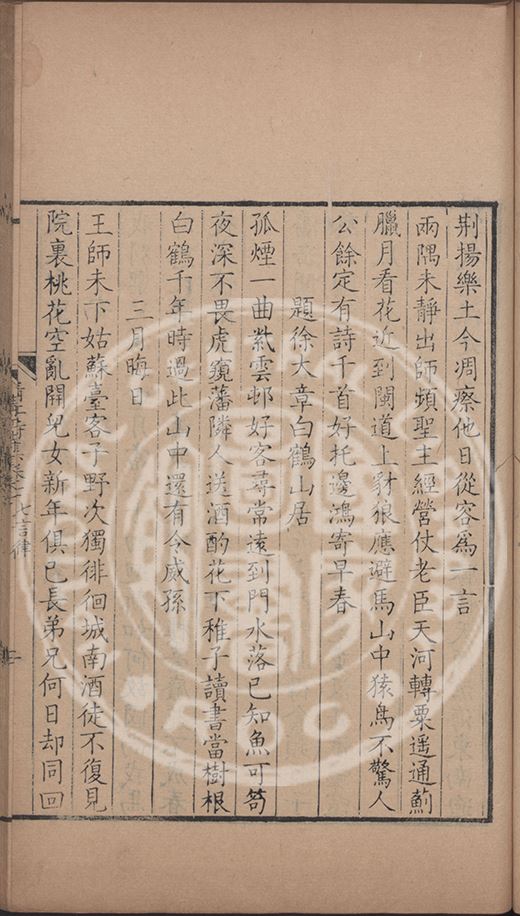 荆揚樂土今凋瘵他日從容爲一言
兩隅未靜出師頻聖主經營仗老臣天河轉粟遥通薊
臘月看花近到閩道上豺狼應避馬山中猿鳥不驚人
公餘定有詩千首好托邊鴻寄早春
題徐大章白鶴山居
孤煙一曲紫雲邨好客尋常遠到門水落已知魚可笱
夜深不畏虎窺藩隣人送酒酌花下稚子讀書當樹根
白鶴千年時過此山中還有令威孫
三月晦日
王師未下姑蘇臺客子野次獨徘徊城南酒徒不復見
院裏桃花空亂開兒女新年俱已長弟兄何日却同回
七言律